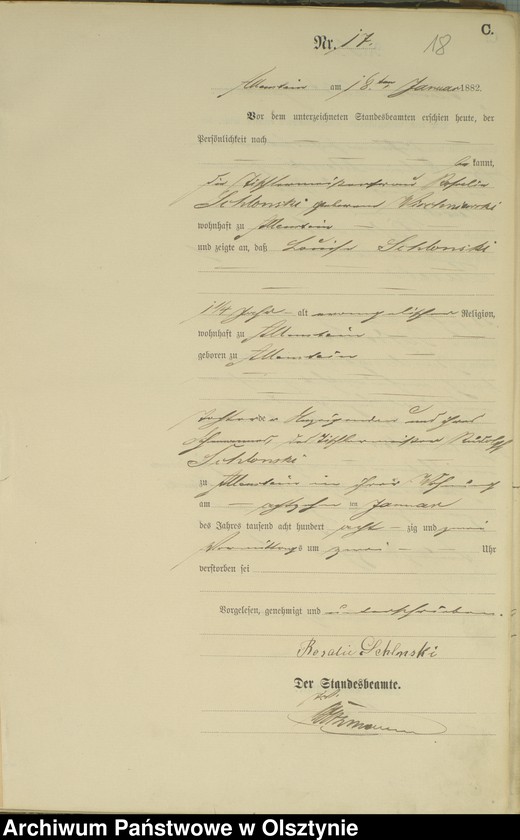 C.
Nr. 17. 18
Allenstein am 18ten Januar 1882.
Vor dem unterzeichneten Standesbeamten erschien heute, der
Persönlichkeit nach
bekannt,
die Tischlermeisterfrau Rosalie
Schlonski geborene
wohnhaft zu Allenstein
und zeigte an, daß Louise Schlonski
1 1/4 Jahr alt evangelischer Religion,
wohnhaft zu Allenstein
geboren zu Allenstein
Tochter der Anzeigenden und ihres
Ehemannes des Tischlermeister Rudolf
Schlonski
zu Allenstein in ihrer Wohnung
am achtzehn ten Januar
des Jahres tausend acht hundert acht zig und zwei
Vormittags um zwei Uhr
verstorben sei
Vorgelesen, genehmigt und unterschrieben.
Rosalie Schlnski
Der Standesbeamte.
Archiwum Państwowe w Olsztynie